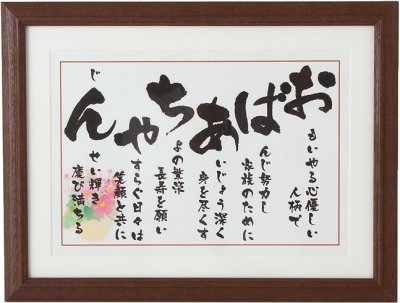 おばあちゃん
もいやる心優しい
人柄で
んじ努力し
家族のために
いじょう深く
身を尽くす
よの繁栄
長寿を願い
すらぐ日々は
笑顔と共に
じ
せい輝き
慶び満ちる